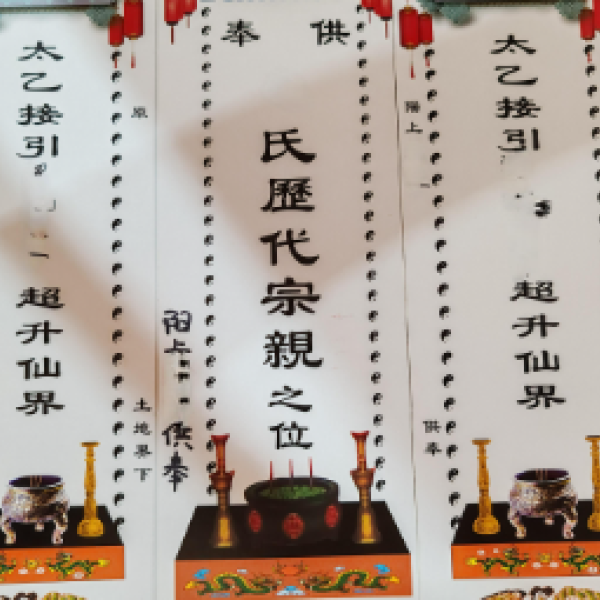 太乙接引
超升仙界
原
土地界下
供奉
氏歷代宗親之位
阳上
供奉
太乙接引
超升仙界
陽上
供奉